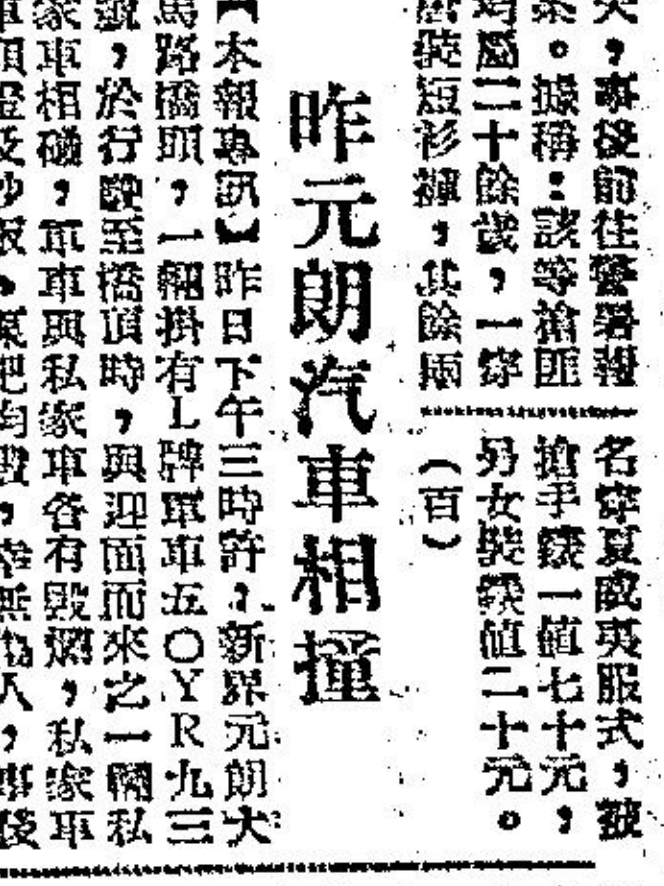 失，事後前往警署報
案。據稱：該等搶匪
均屬二十餘歲，一穿
唐裝短衫褲，其餘兩
名穿夏威夷服式，被
搶手錶一值七十元，
另女裝錶值二十元。
（百）
昨元朗汽車相撞
【本報專訊】昨日下午三時許，新界元朗大
馬路橋頭，一輛掛有L牌軍車五〇YR九三
號，於行駛至橋頂時，與迎面而來之一輛私
家車相碰，軍車與私家車各有毀爛，私家車
車頭燈及沙板、泵把均毀，幸無傷人，事後